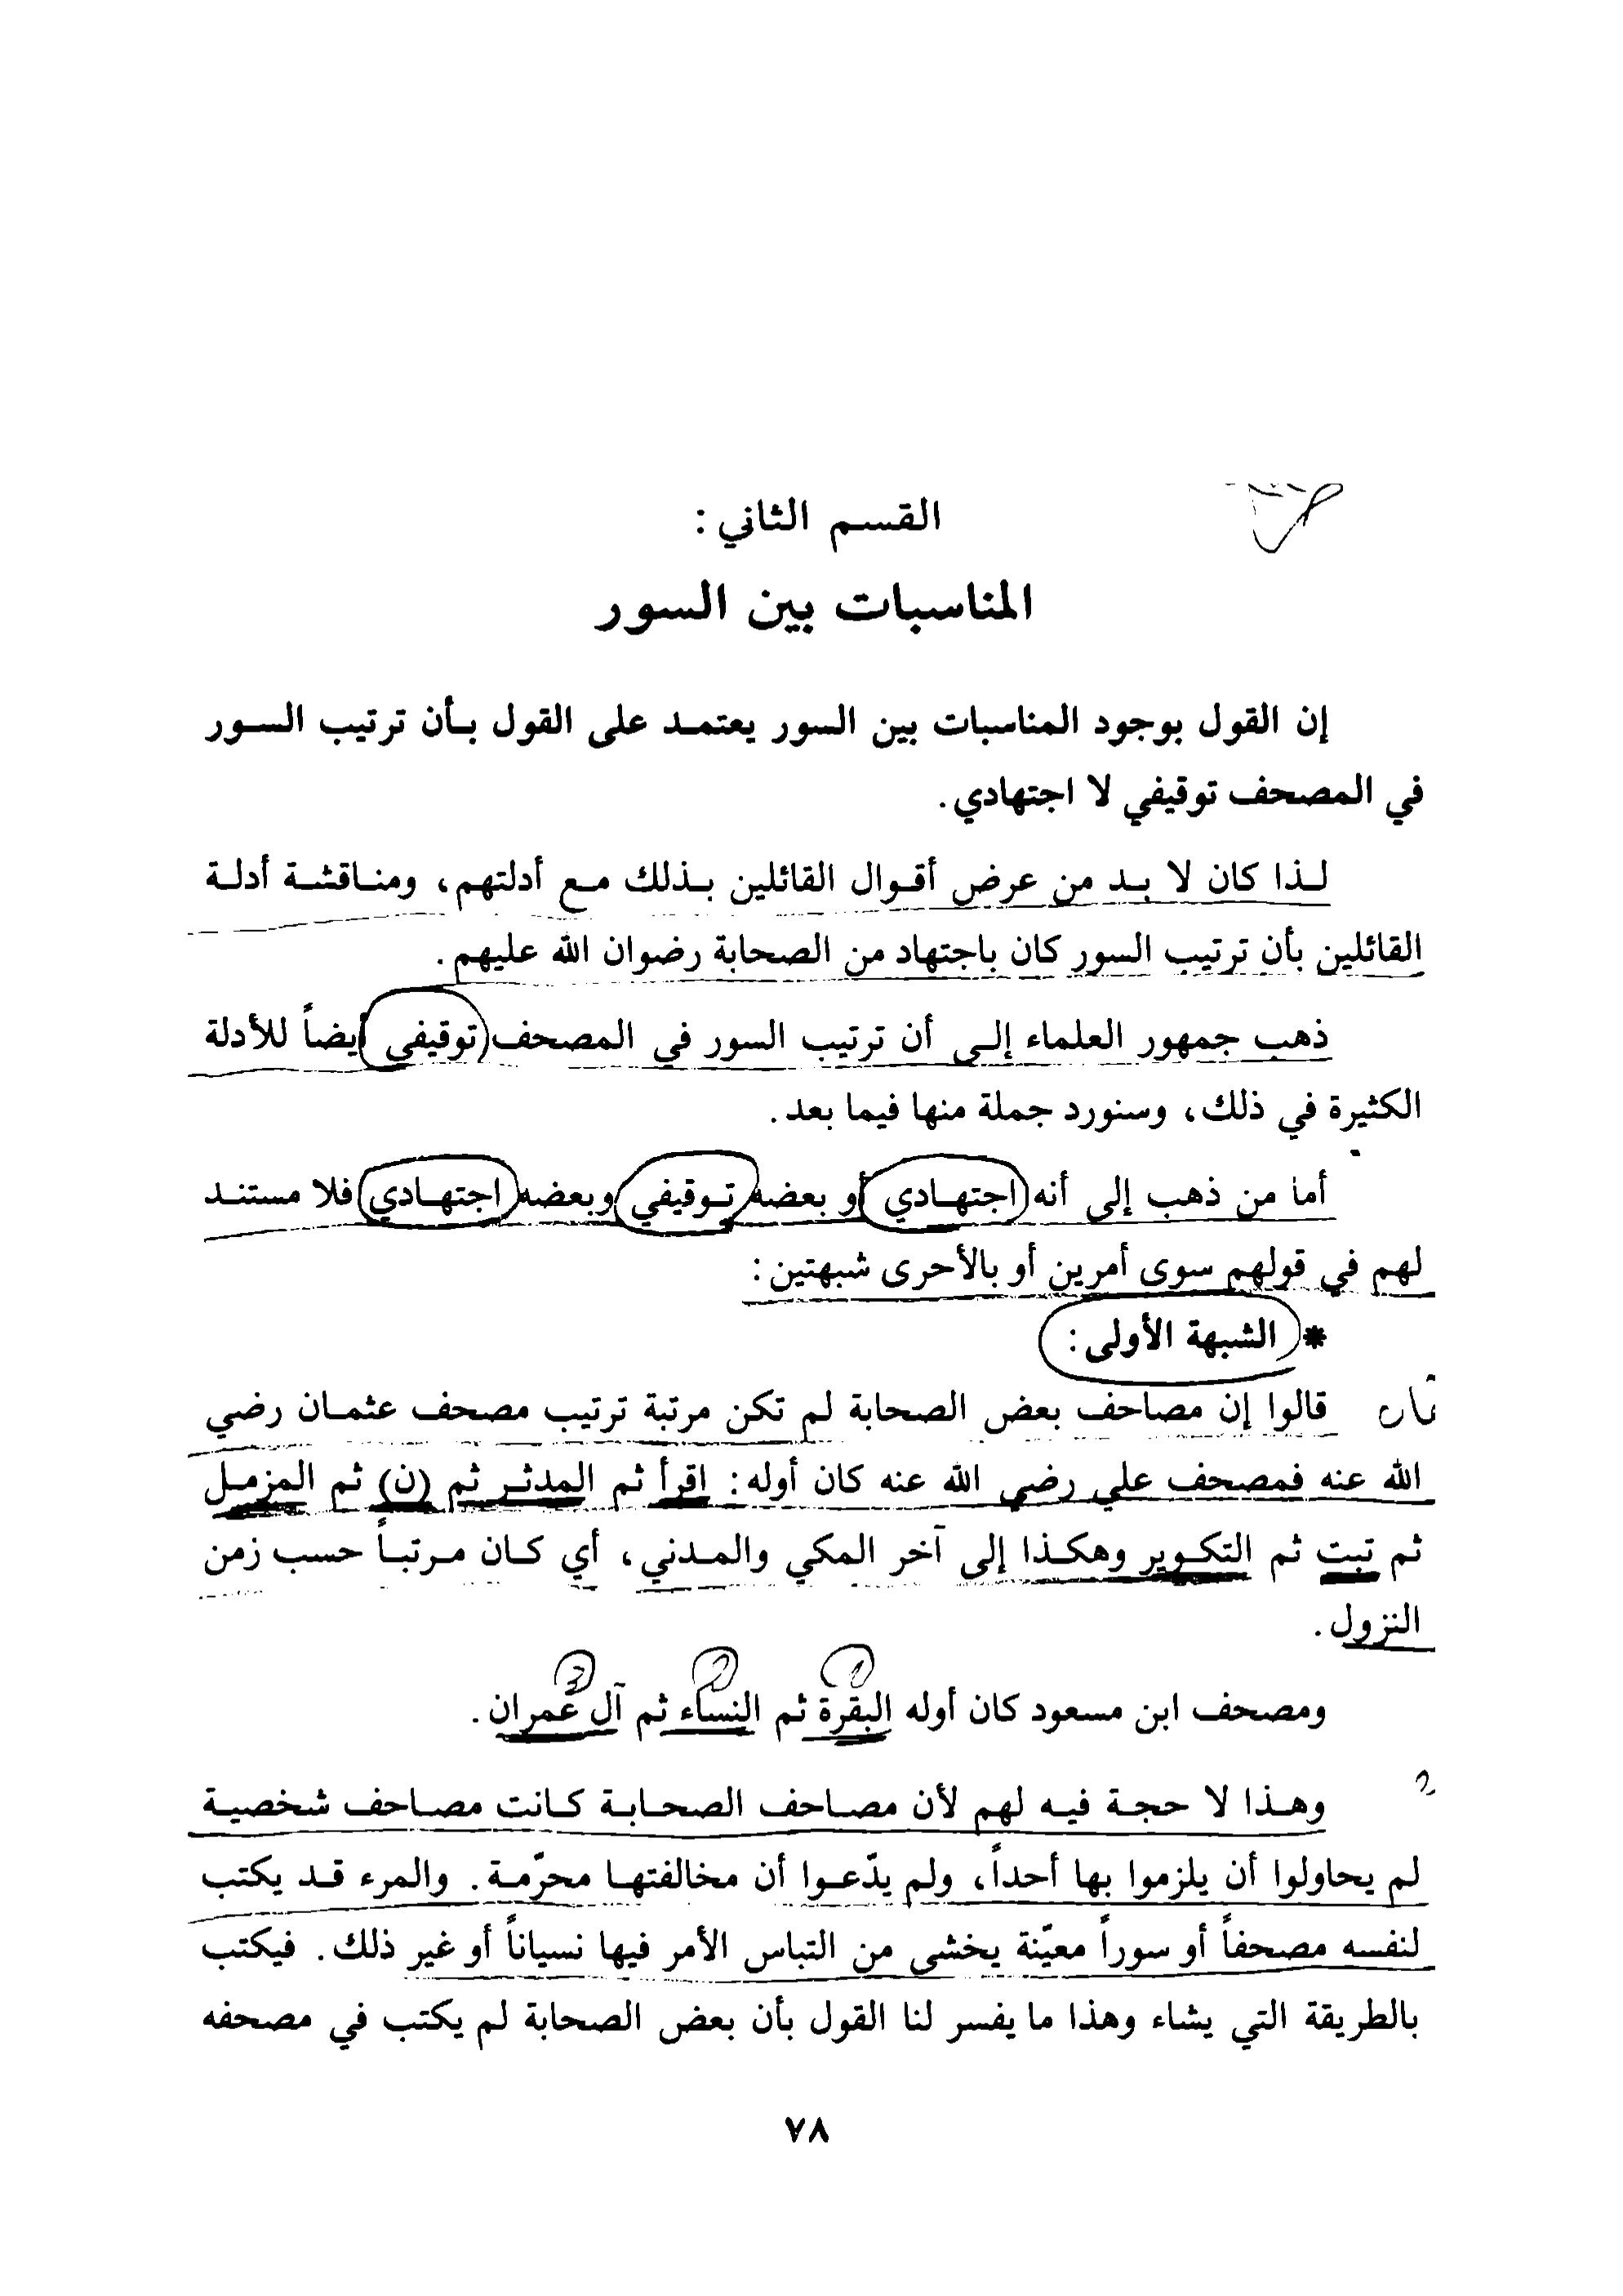 القسم الثاني :
المناسبات بين السور
إن القول بوجود المناسبات بين السور يعتمد على القول بأن ترتيب السور
في المصحف توقيفي لا اجتهادي .
لذا كان لا بد من عرض أقوال القائلين بذلك مع أدلتهم، ومناقشة أدلة
القائلين بأن ترتيب السور كان باجتهاد من الصحابة رضوان الله عليهم .
ذهب جمهور العلماء إلى أن ترتيب السور في المصحف توقيفي أيضاً للأدلة
الكثيرة في ذلك، وسنورد جملة منها فيما بعد .
أما من ذهب إلى أنه اجتهادي أو بعضه توقيفي وبعضه اجتهادي فلا مستند
لهم في قولهم سوى أمرين أو بالأحرى شبهتين :
* الشبهة الأولى :
قالوا إن مصاحف بعض الصحابة لم تكن مرتبة ترتيب مصحف عثمان رضي
الله عنه فمصحف علي رضي الله عنه كان أوله : اقرأ ثم المدثر ثم (ن) ثم المزمل
ثم تبت ثم التكوير وهكذا إلى آخر المكي والمدني، أي كان مرتباً حسب زمن
النزول .
ومصحف ابن مسعود كان أوله البقرة ثم النساء ثم آل عمران .
وهذا لا حجة فيه لهم لأن مصاحف الصحابة كانت مصاحف شخصية
لم يحاولوا أن يلزموا بها أحداً، ولم يدّعوا أن مخالفتها محرّمة . والمرء قد يكتب
لنفسه مصحفاً أو سوراً معيّنة يخشى من التباس الأمر فيها نسياناً أو غير ذلك . فيكتب
بالطريقة التي يشاء وهذا ما يفسر لنا القول بأن بعض الصحابة لم يكتب في مصحفه
٧٨